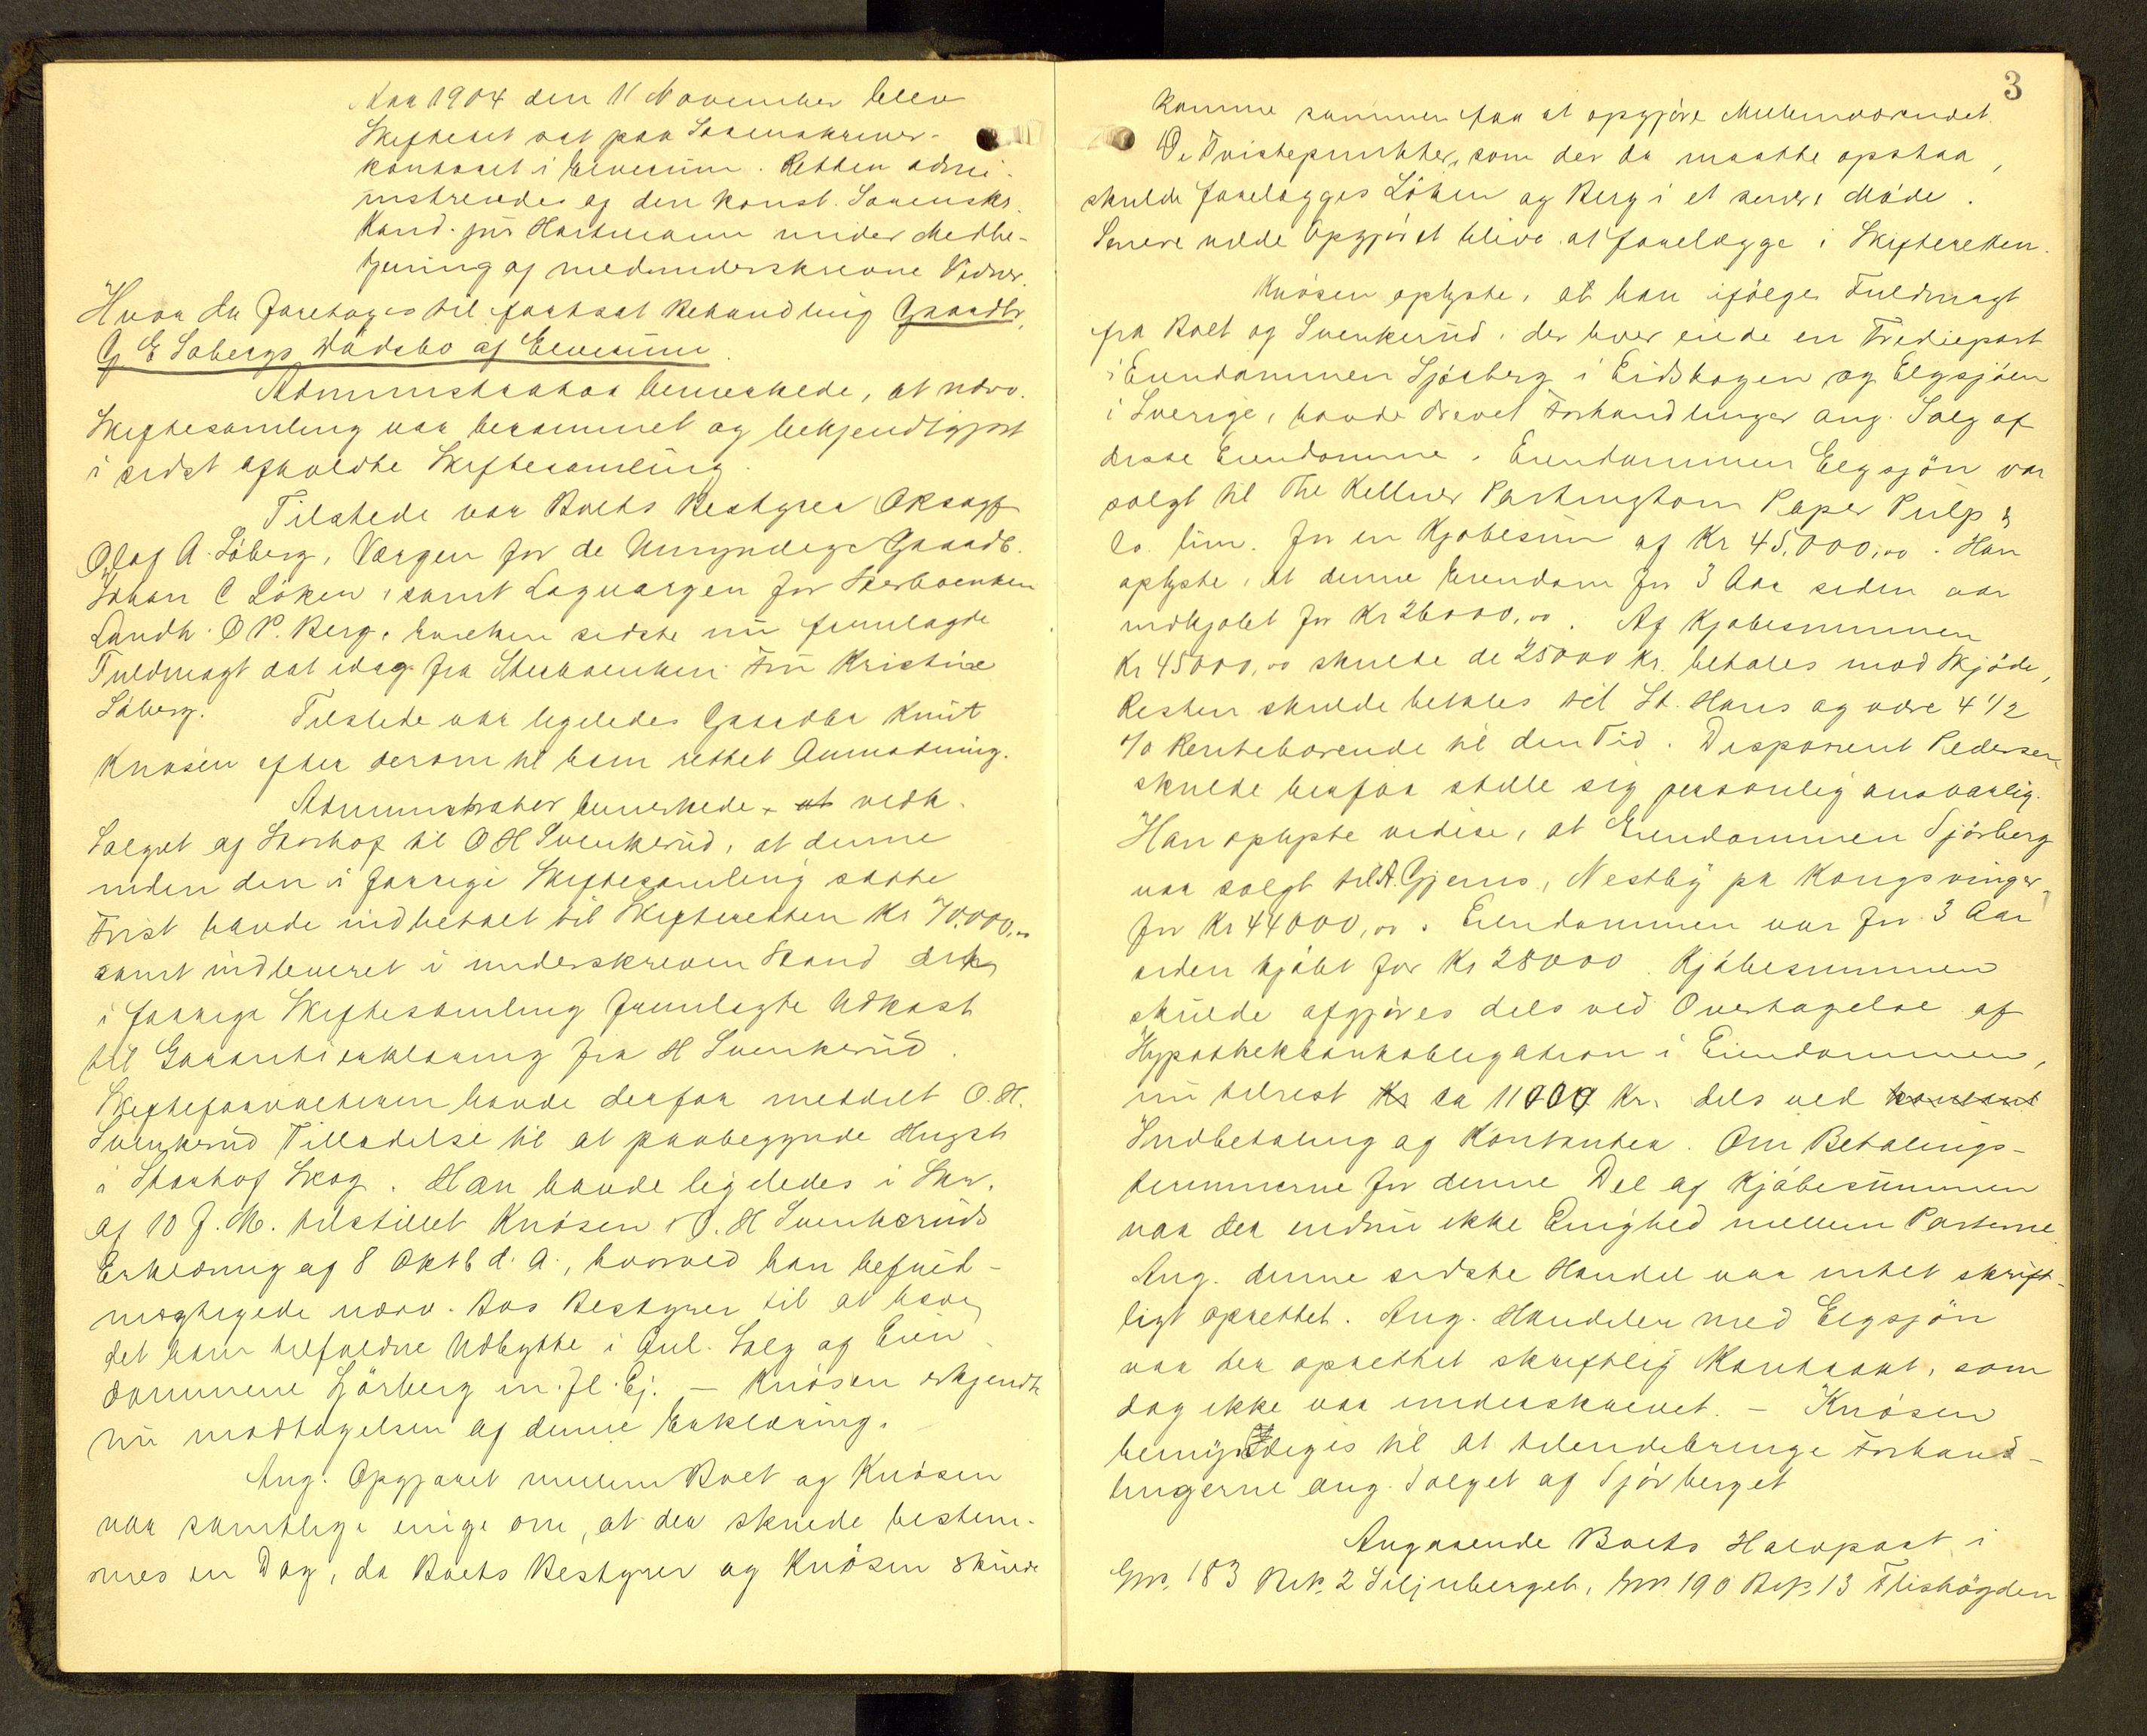 Aar 1904 den 11 November blev
Skifteret sat paa Sorenskriver-
kontoret i Elverum. Retten admi-
nistreredes af den konst. Sorenskr.
Kand. jur Hartmann under Medbe-
tjening af medunderskrevne Vidner.
Hvor da foretoges til fortsat Behandling Gaardbr.
G E Søbergs Dødsbo af Elverum.
Administrator bemerkede, at nærv.
Skiftesamling var berammet og bekjendtgjort
i sidst afholdte Skiftesamling.
Tilstede var Boets Bestyrer Oksagf
Olaf A. Søberg, Værgen for de Umyndige Gaardb.
Johan C Løken, samt Lagværgen for Sterboenken
Landh. O P. Berg, hvilken sidste nu fremlagde
Fuldmagt dat idag fra Sterboenken Fru Kristine
Søberg. Tilstede var ligeledes Gaardbr Knut
Knøsen efter derom til ham rettet Anmodning.
Administrator bemerkede, at vedk.
Salget af Storhof til O H Svenkerud, at denne
inden den i forrige Skiftesamling satte
Frist havde indbetalt til Skifteretten Kr 70.000,00
samt indleveret i underskreven Stand det
i forrige Skiftesamling fremlagte Udkast
til Garantierklæring fra H Svenkerud.
Skifteforvalteren havde derfor meddelt O. H.
Svenkerud Tilladelse til at paabegynde Hugst
i Storhof Skog. Han havde ligeledes i Skr.
af 10 f. M. tilstillet Knøsen O. H Svenkeruds
Erklæring af 8 Oktb d. A., hvorved han befuld-
mægtigede nærv. Bos Bestyrer til at hæve
det ham tilfaldne Udbytte i Anl. Salg af Eien-
dommene Sjørberg m. fl. Ej. – Knøsen erkjendte
nu modtagelsen af denne Erklæring.
Ang. Opgjøret mellem Boet og Knøsen
var samtlige enige om, at der skulde bestem-
mes en Dag, da Boets Bestyrer og Knøsen skulde
3
komme sammen for at opgjøre Mellemværendet.
De Tvistepunkter, som der da maatte opstaa,
skulde forelægges Løken og Berg i et senere Møde.
Senere vilde Opgjøret blive at forelægge i Skifteretten.
Knøsen oplyste, at han ifølge Fuldmagt
fra Boet og Svenkerud, der hver eiede en Trediepart
i Eiendommen Sjørberg i Eidskogen og Elgsjøen
i Sverige, havde drevet Forhandlinger ang. Salg af
disse Eiendomme. Eiendommen Elgsjön var
solgt til The Kellner Partington Paper Pulp &
Co. lim. for en Kjøbesum af Kr 45.000,00. Han
oplyste, at denne Eiendom for 3 Aar siden var
indkjøbt for Kr 26000,00. Af Kjøbesummen
Kr 45000,00 skulde de 25000 Kr. betales mod Skjøde,
Resten skulde betales til St. Hans og være 4 1/2
% Rentebærende til den Tid. Disponent Pedersen
skulde herfor stille sig personlig ansvarlig.
Han oplyste videre, at Eiendommen Sjørberg
var solgt til A. Gjems, Nestby pr Kongsvinger,
for Kr 44000,00. Eiendommen var for 3 Aar
siden kjøbt for Kr 28000. Kjøbesummen
skulde afgjøres dels ved Overtagelse af
Hypothekbankobligation i Eiendommen,
nu tilrest Kr ca 11000 Kr. dels ved kontant
Indbetaling af Kontanter. Om Betalings-
terminerne for denne Del af Kjøbesummen
var der endnu ikke Enighed mellem Parterne.
Ang. denne sidste Handel var intet skrift-
ligt oprettet. Ang. Handelen med Elgsjön
var der oprettet skriftlig Kontrakt, som
dog ikke var underskrevet. – Knøsen
bemyndiges til at tilendebringe Forhand-
lingerne ang. Salget af Sjørberget
Angaaende Boets Halvpart i
Gnr. 183 Brk. 2 Siljuberget, Gnr. 190 Brk. 13 Flishøgden